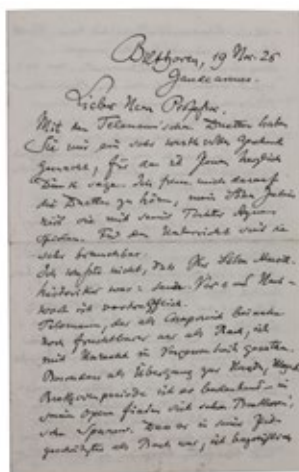 Bilthoven, 19 Nov. 25
Gaudeamus.
Lieber Herr Professor.
Mit den Telemann'schen Duetten haben
Sie mir ein sehr wertvolles Geschenk
gemacht, für das ich Ihnen herzlich
Dank sage. Ich freue mich darauf
die Duetten zu hören, wenn
sie mit seiner Tochter
spielen. Für den Unterricht sind sie
sehr brauchbar.
Ich wusste nicht, dass Ihr Sohn Musik-
historiker war: seine Vor- und Nach-
wort ist vortrefflich.
Telemann, der als Componist beinahe
noch fruchtbarer war als Bach, ist
mit Unrecht in Vergessenheit geraten.
Besonders als Übergang zur Haydn, Mozart
Beethovenperiode ist er bedeutend - in
seinen Opern finden sich schon Beethoven'-
sche Spuren. Dass er in seiner Zeit
geschätzter als Bach war, ist begreiflich